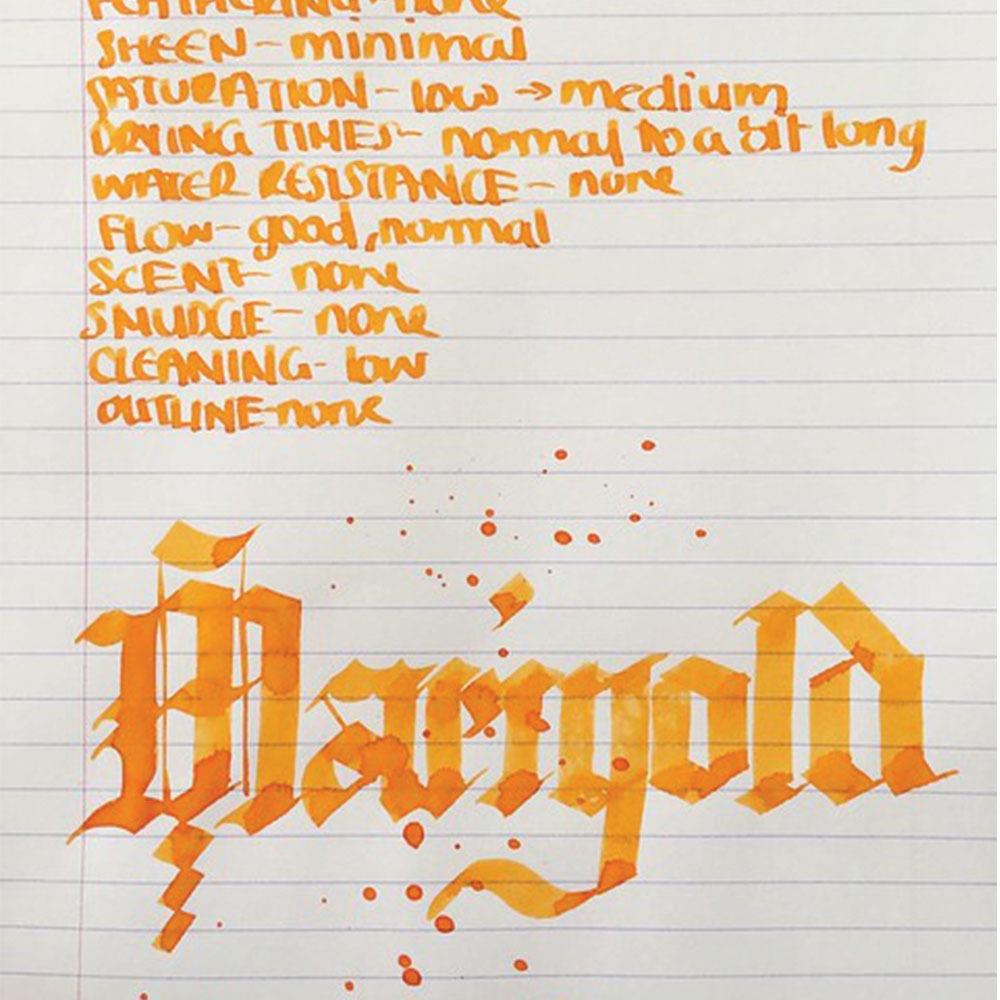 FEATHERING-none
SHEEN - minimal
SATURATION - low → medium
DRYING TIMES - normal to a bit long
WATER RESISTANCE - none
FLOW - good, normal
SCENT - none
SMUDGE - none
CLEANING - low
OUTLINE-none
Marigold